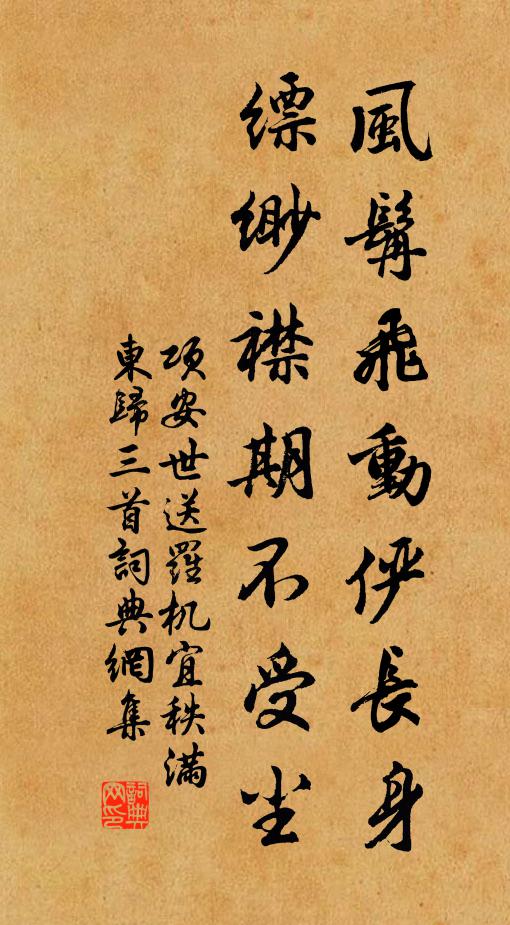 風髯飛動俜長身
縹緲襟期不受尘
项安世送羅机宜秩滿
東歸三首詞典網集
詞典网印